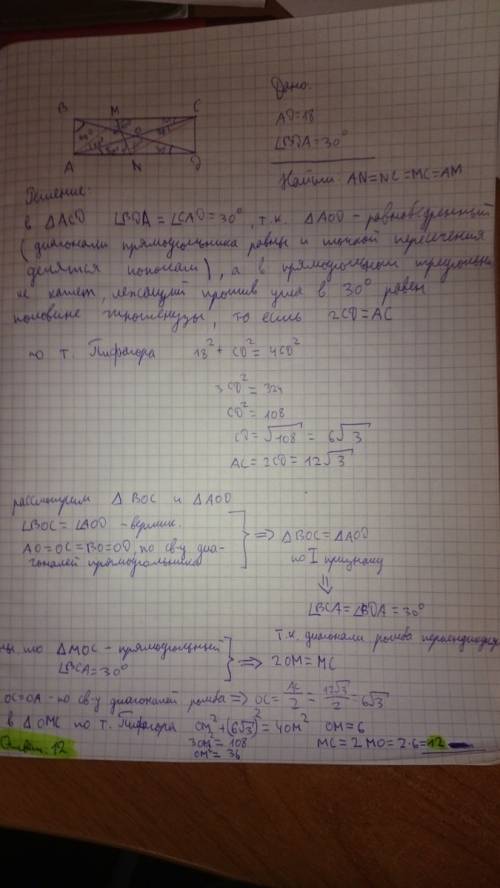 Дано:
AD=18
∠BDA=30°
Найти: AN=NC=MC=AM
B M C
O
A N D
Решение:
В △ACD ∠BDA=∠CAD=30°, т.к. △AOD – равнобедренный
(диагонали прямоугольника равны и точкой пересечения
делятся пополам), а в прямоугольном
катет, лежащий против угла в 30° равен
половине гипотенузы, то есть 2CD=AC
по т. Пифагора 18²+CD²=4CD²
3CD²=324
CD²=108
CD=√108=6√3
AC=2CD=12√3
рассмотрим △BOC и △AOD
∠BOC=∠AOD – вертик.
AO=OC=BO=OD, по св-у диа-
гоналей прямоугольника
⇒ △BOC=△AOD
по I признаку
⇓
∠BCA=∠BDA=30°
что △MOC – прямоугольный
∠BCA=30°
⇒ 2OM=MC
т.к. диагонали ромба
OC=OA – по св-у диагоналей ромба ⇒ OC=AC/2=12√3/2=6√3
в △OMC по т. Пифагора OM²+(6√3)²=4OM² OM=6
3OM²=108 MC=2MO=2·6=12
OM²=36
Ответ: 12